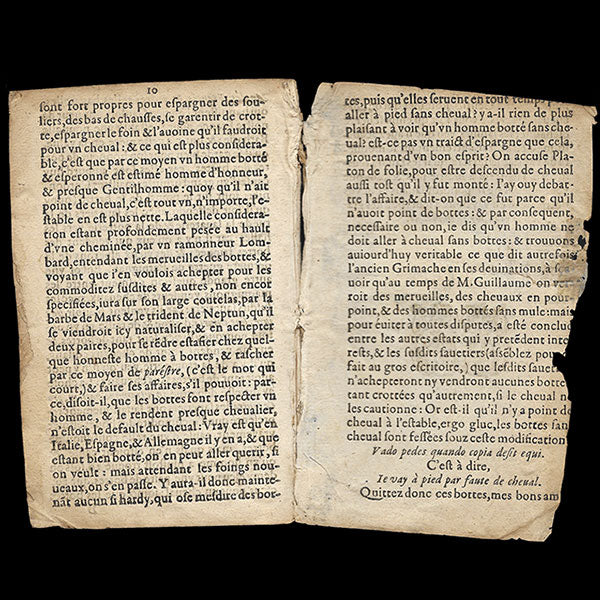 10
sont fort propres pour espargner des sou-
liers, des bas de chausses, se garentir de crot-
te, espargner le foin & l'auoine qu'il faudroit
pour vn cheual: & ce qui est plus considera-
ble, c'est que par ce moyen vn homme botté
& esperonné est estimé homme d'honneur,
& presque Gentilhomme: quoy qu'il n'ait
point de cheual, c'est tout vn, n'importe, l'e-
stable en est plus nette. Laquelle considera-
tion estant profondement pesée au hault
d'vne cheminée, par vn ramonneur Lom-
bard, entendant les merueilles des bottes, &
voyant que i'en voulois achepter pour les
commoditez susdites & autres, non encor
specifiées, iura sur son large coutelas, par la
barbe de Mars & le trident de Neptun, qu'il
se viendroit icy naturaliser, & en achepter
deux paires, pour se rēdre estafier chez quel-
que honneste homme à bottes, & tascher
par ce moyen de paréstre, (c'est le mot qui
court,) & faire ses affaires, s'il pouuoit: par-
ce, disoit-il, que les bottes font respecter vn
homme, & le rendent presque cheualier,
n'estoit le default du cheual: Vray est qu'en
Italie, Espagne, & Allemagne il y en a, & que
estant bien botté, on en peut aller querir, si
on veult: mais attendant les foings nou-
ueaux, on s'en passe. Y aura-il donc mainte-
nāt aucun si hardy, qui ose mesdire des bot-
tes, puis qu'elles seruent en tout temps
aller à pied sans cheual? y a-il rien de plus
plaisant à voir qu'vn homme botté sans che-
ual? est-ce pas vn traict d'espargne que cela,
prouenant d'vn bon esprit? On accuse Pla-
ton de folie, pour estre descendu de cheual
aussi tost qu'il y fut monté: l'ay ouy debat-
tre l'affaire, & dit-on que ce fut parce qu'il
n'auoit point de bottes: & par consequent,
necessaire ou non, ie dis qu'vn homme ne
doit aller à cheual sans bottes: & trouuons
auiourd'huy veritable ce que dit autrefois
l'ancien Grimache en ses deuinations, à
uoir qu'au temps de M. Guillaume on ver
roit des merueilles, des cheuaux en pour
point, & des hommes bottés sans mule: mais
pour éuiter à toutes disputes, a esté conclud
entre les autres estats qui y pretēdent inte
rests, & les susdits sauetiers (assēblez pour
fait au gros escritoire,) que lesdits sauetiers
n'achepteront ny vendront aucunes bottes
tant crottées qu'autrement, si le cheual n
les cautionne: Or est-il qu'il n'y a point de
cheual à l'estable, ergo gluc, les bottes sans
cheual sont fessées souz ceste modification
Vado pedes quando copia desit equi.
C'est à dire,
Ie vay à pied par faute de cheual.
Quittez donc ces bottes, mes bons am